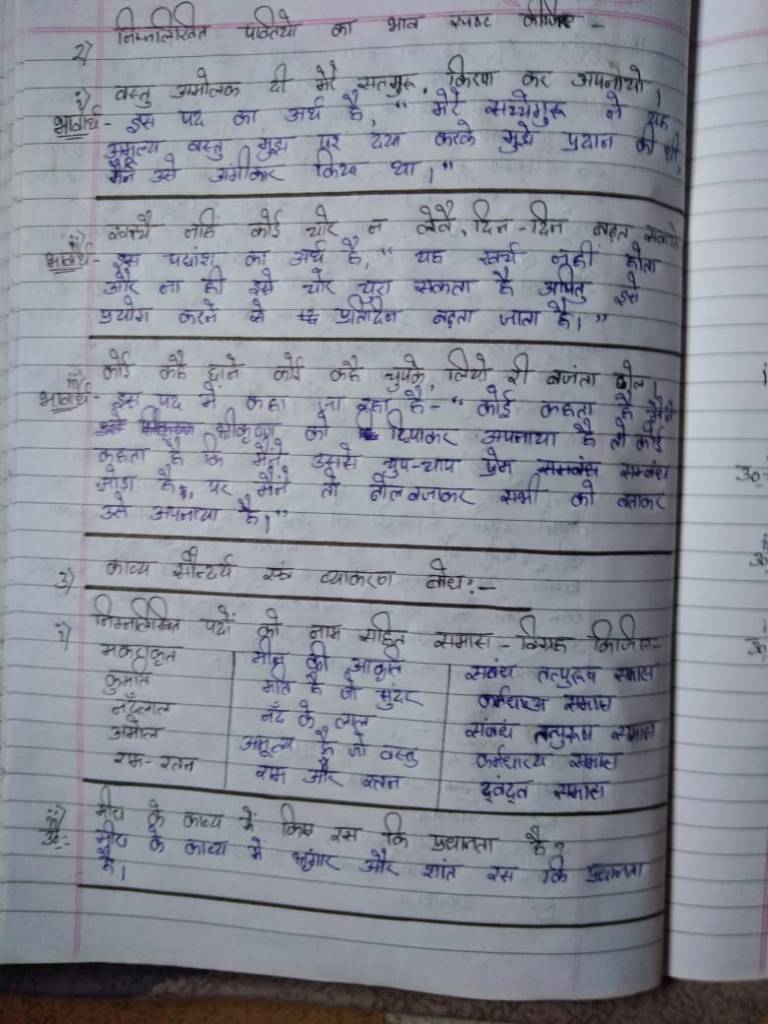 2) निम्नलिखित पंक्तियो का भाव स्पष्ट कीजिए -
i) वस्तु अमोलक दी मेरे सतगुरू, किरपा कर अपनायो।
भावार्थ- इस पद का अर्थ है, " मेरे सच्चेगुरू ने यह
अमूल्य वस्तु मुझ पर दया करके मुझे प्रदान की थी,
मैंने उसे अंगीकार किया था।"
ii) खरचै नहिं कोई चोर न लेवै, दिन-दिन बढ़त सवायो
भावार्थ- इस पद्यांश का अर्थ है, " यह खर्च नहीं होता
और ना ही इसे चोर चुरा सकता है अपितु इसे
प्रयोग करने से प्रतिदिन बढ़ता जाता है।"
iii) कोई कहै छाने कोई कहै चुपके, लियो री बजंता ढोल।
भावार्थ- इस पद में कहा जा रहा है- " कोई कहता है मैंने
श्रीकृष्ण को छिपाकर अपनाया है तो कोई
कहता है कि मैंने उससे चुप-चाप प्रेम सम्बंध
जोड़ा है, पर मैंने तो ढोल बजाकर सभी को बताकर
उसे अपनाया है।"
3) काव्य सौन्दर्य एवं व्याकरण बोध:-
i) निम्नलिखित पदों को नाम सहित समास-विग्रह किजिए-
मकराकृत मीन की आकृति सबंधं तत्पुरूष समास
कुमति मति है जो सुंदर कर्मधारय समास
नँदलाल नँद के लाल सबंधं तत्पुरूष समास
अमोल अमूल्य है जो वस्तु कर्मधारय समास
राम-रतन राम और रतन द्वंद्व समास
ii) मीरा के काव्य में किस रस कि प्रधानता है?
उ०:- मीरा के काव्य में श्रृंगार और शांत रस कि प्रधानता
है।
i
उ०-
ii
उ०
i
उ०